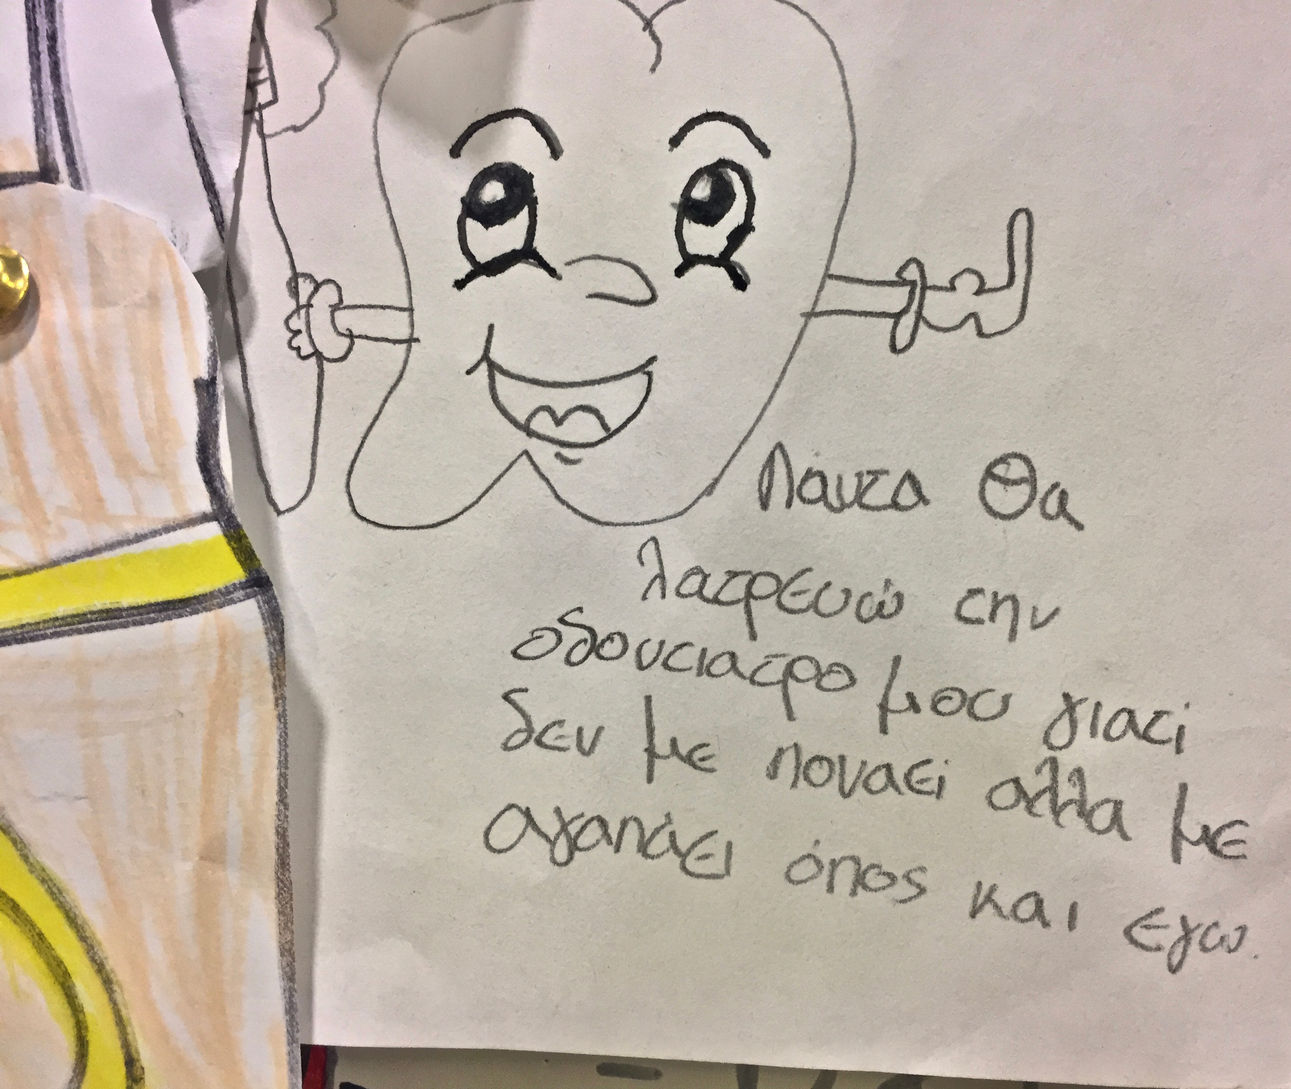 Παντα θα
λατρευω την
οδοντιατρο μου γιατί
δεν με ποναει αλλα με
αγαπάει όπος και εγω.